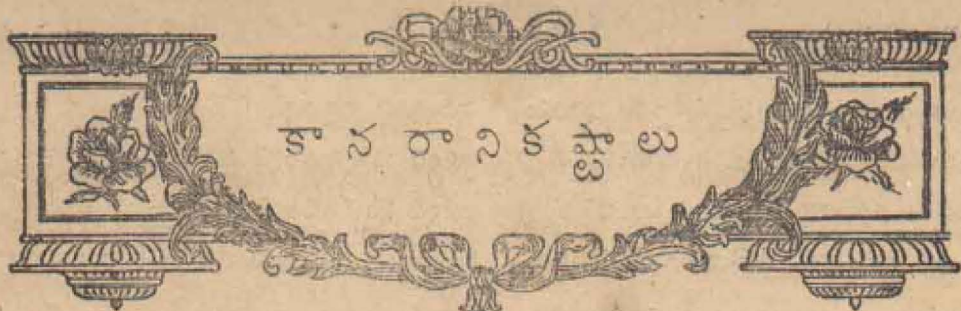 కానరానికష్టాలు